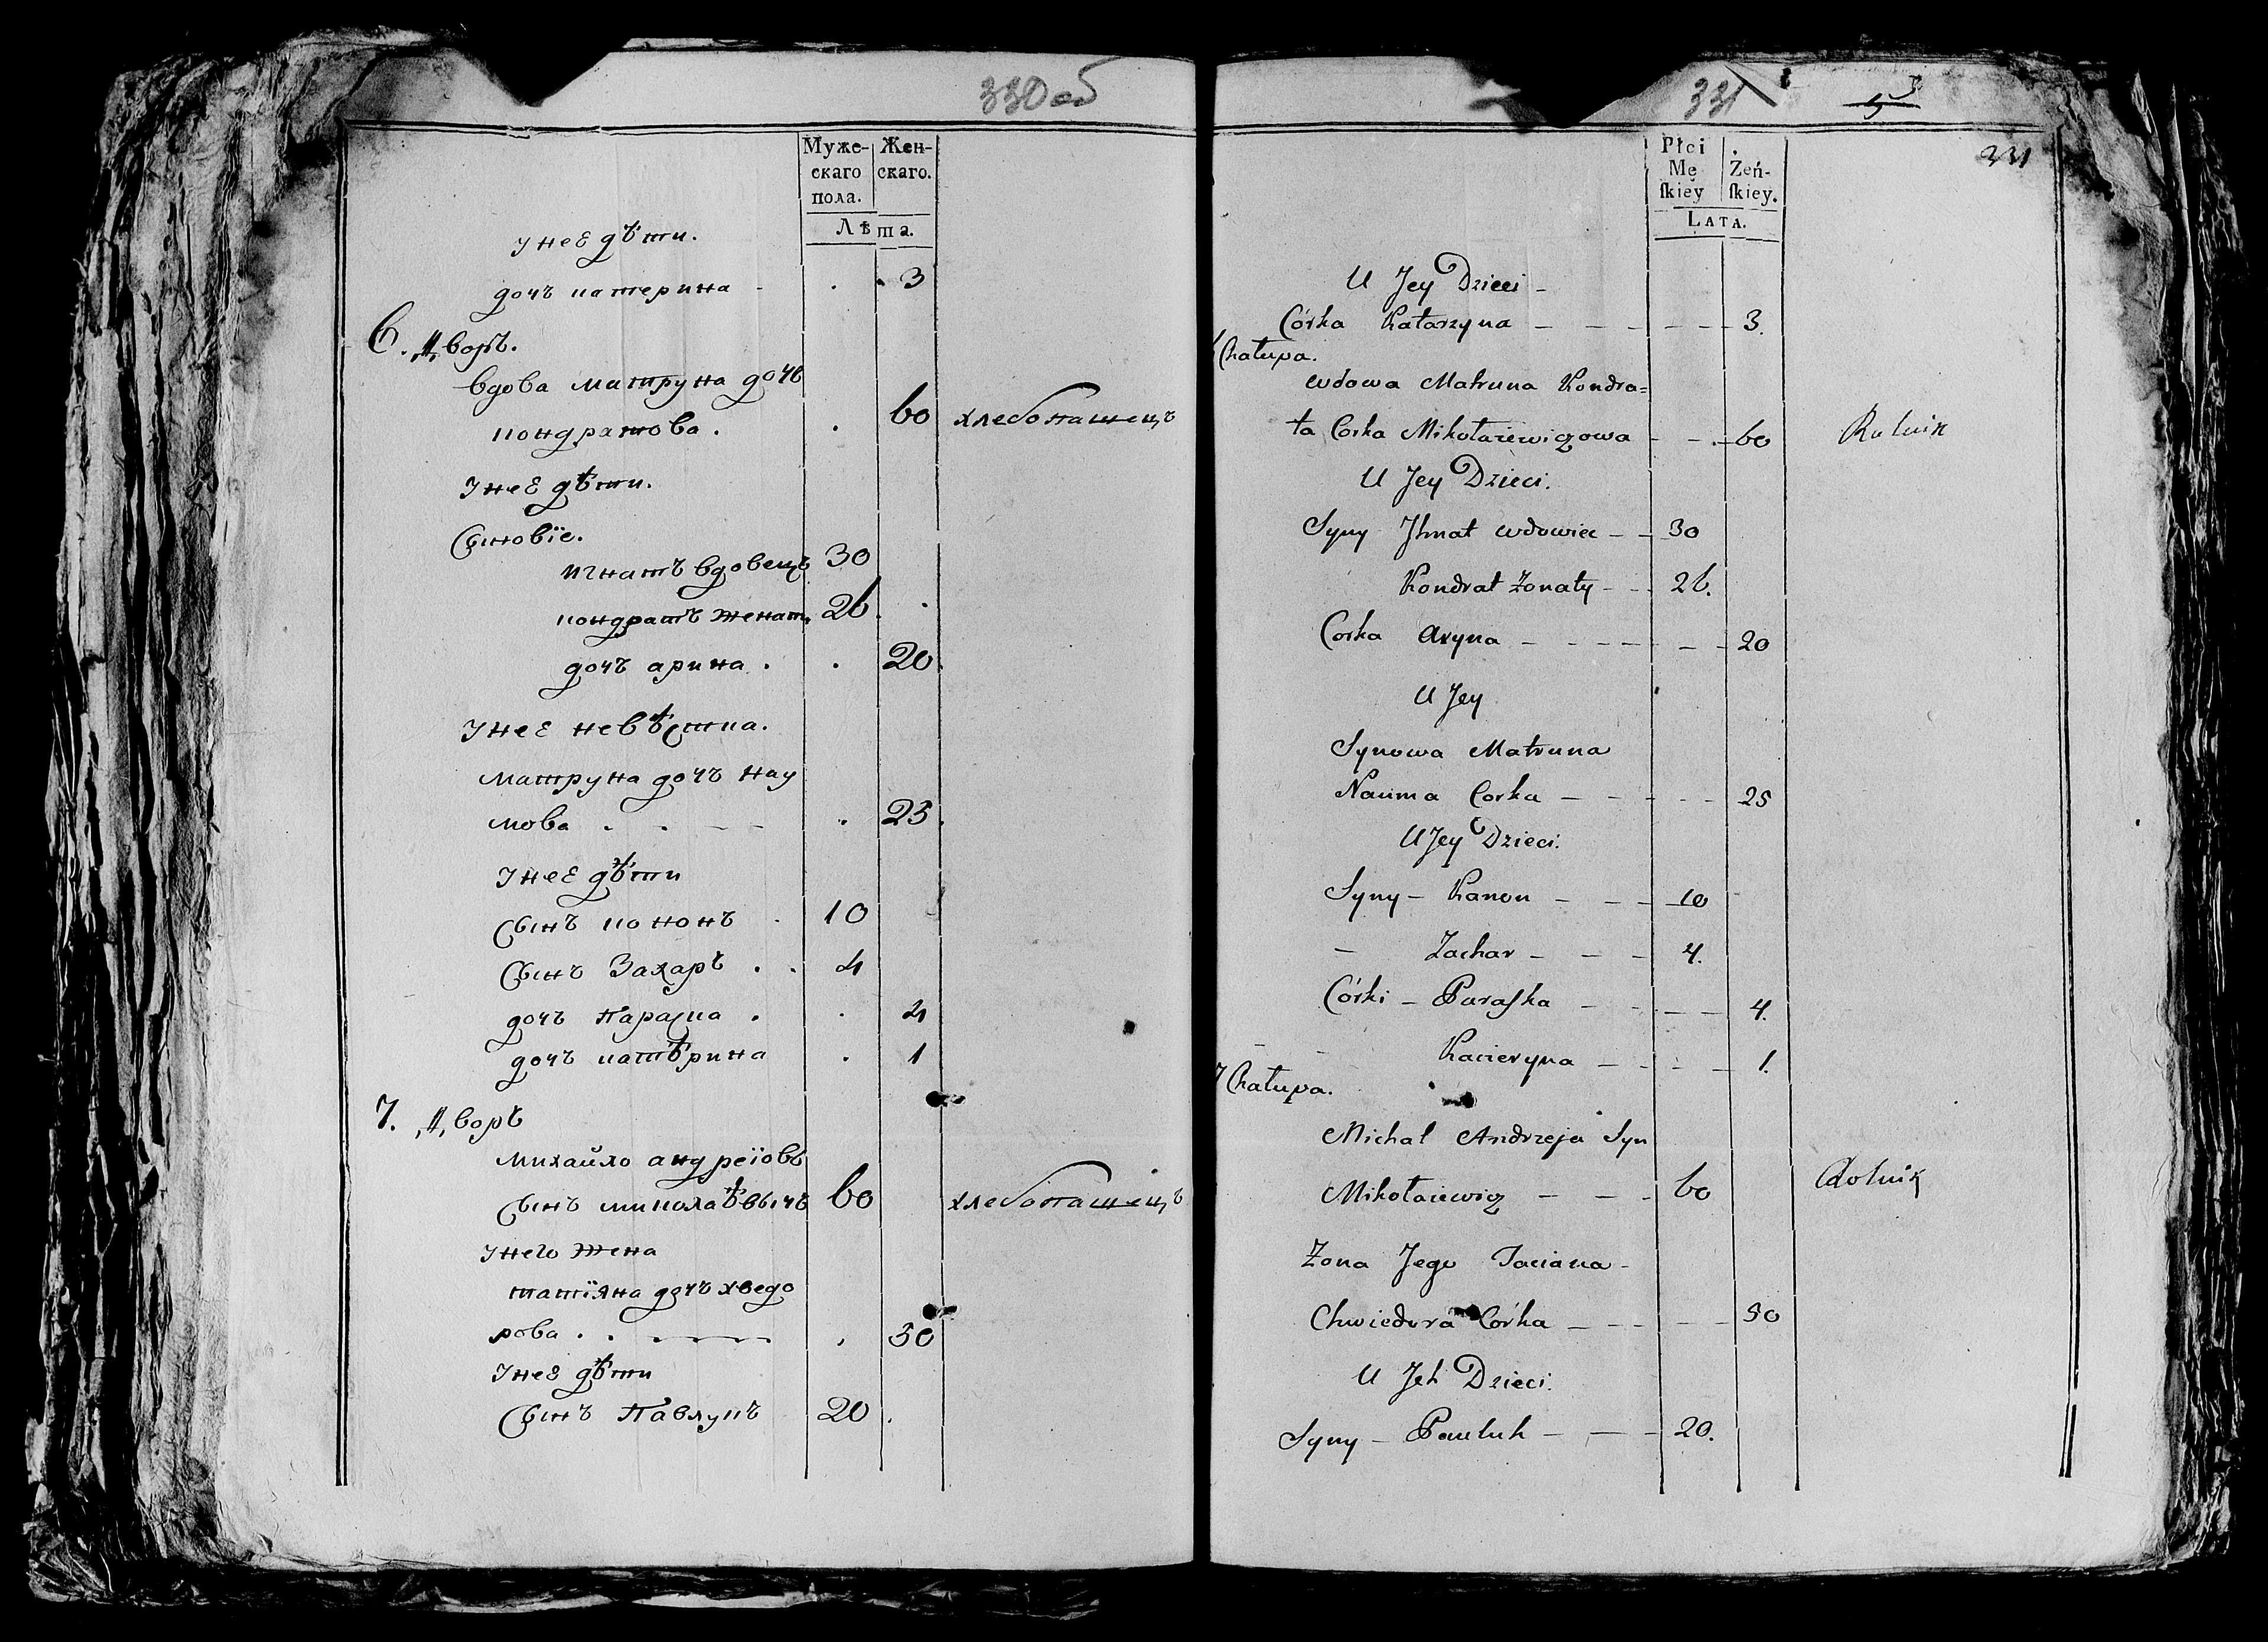 330 об
Муже- Жен-
скаго скаго.
пола.
Лѣта.
у неѣ дѣти.
дочъ катерина - . . 3
6. Дворъ.
вдова матруна дочь
кондратова . . 60 хлебопашецъ
У неѣ дѣти.
Сыновїе.
игнатъ вдовецъ 30
кондратъ женат. 26 .
дочъ арина . . 20.
У неѣ невѣстка.
матруна дочъ нау
мова . . - - . 25.
У неѣ дѣти
Сынъ кононъ . 10
Сынъ Захаръ . . 4
дочъ Параска . . 4
дочъ катѣрина . 1
7. Дворъ
михайло андреїовъ
Сынъ миколаѣвычъ 60 хлебопашецъ
У него жена
татїяна дочъ хведо
рова . . - - - . 50
У неѣ дѣти
Сынъ Павлукъ 20 .
331
331
Płci Żeń-
Mę ſkiey.
ſkiey
LATA.
U Jey Dzieci -
Córka Katarzyna - - - - - 3.
Chałupa.
wdowa Matruna Kondra=
ta Corka Mikołaiewiczowa - - - 60 Rolnik
U Jey Dzieci.
Syny Jhnat wdowiec - - 30
Kondrat Żonaty - - 26.
Corka Aryna - - - - - - 20
U Jey
Synowa Matruna
Nauma Corka - - - - - 25
U Jey Dzieci.
Syny - Kanon - - - 10
- Zachar - - - 4.
Córki - Paraſka - - - - 4.
- - Kacieryna - - - - 1.
7 Chałupa.
Michał Andrzeja Syn
Mikołaiewicz - - - 60 Rolnik
Żona Jego Taciana -
Chwiedora Córka - - - - 50
U Jch Dzieci.
Syny - Pauluk - - - 20.